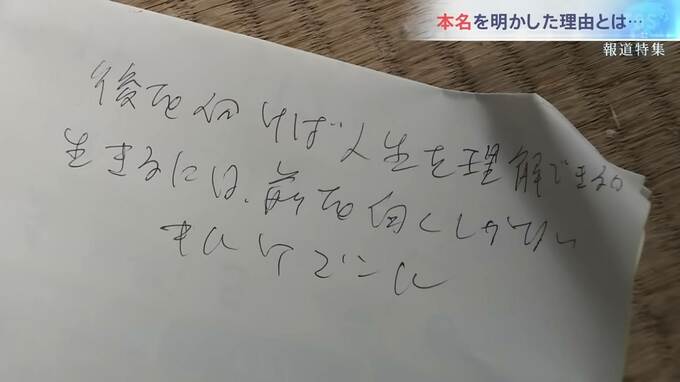 本名を明かした理由とは…
報道特集
後を向けば人生を理解できる。
生きるには、前を向くしかない